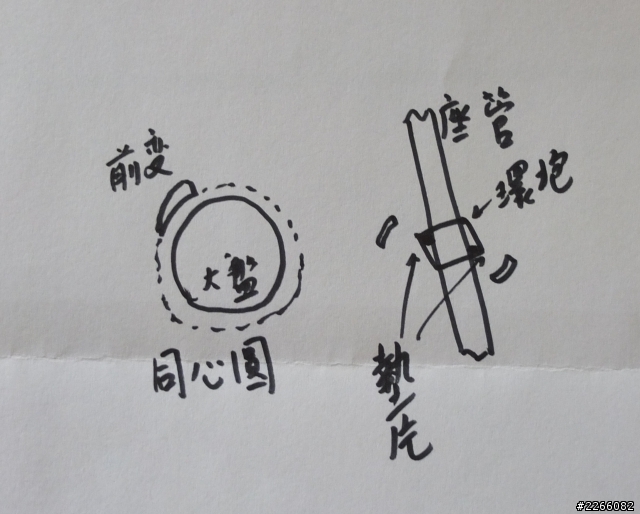 前变
大盤
同心圓
座管
環抱
墊片
#2266082